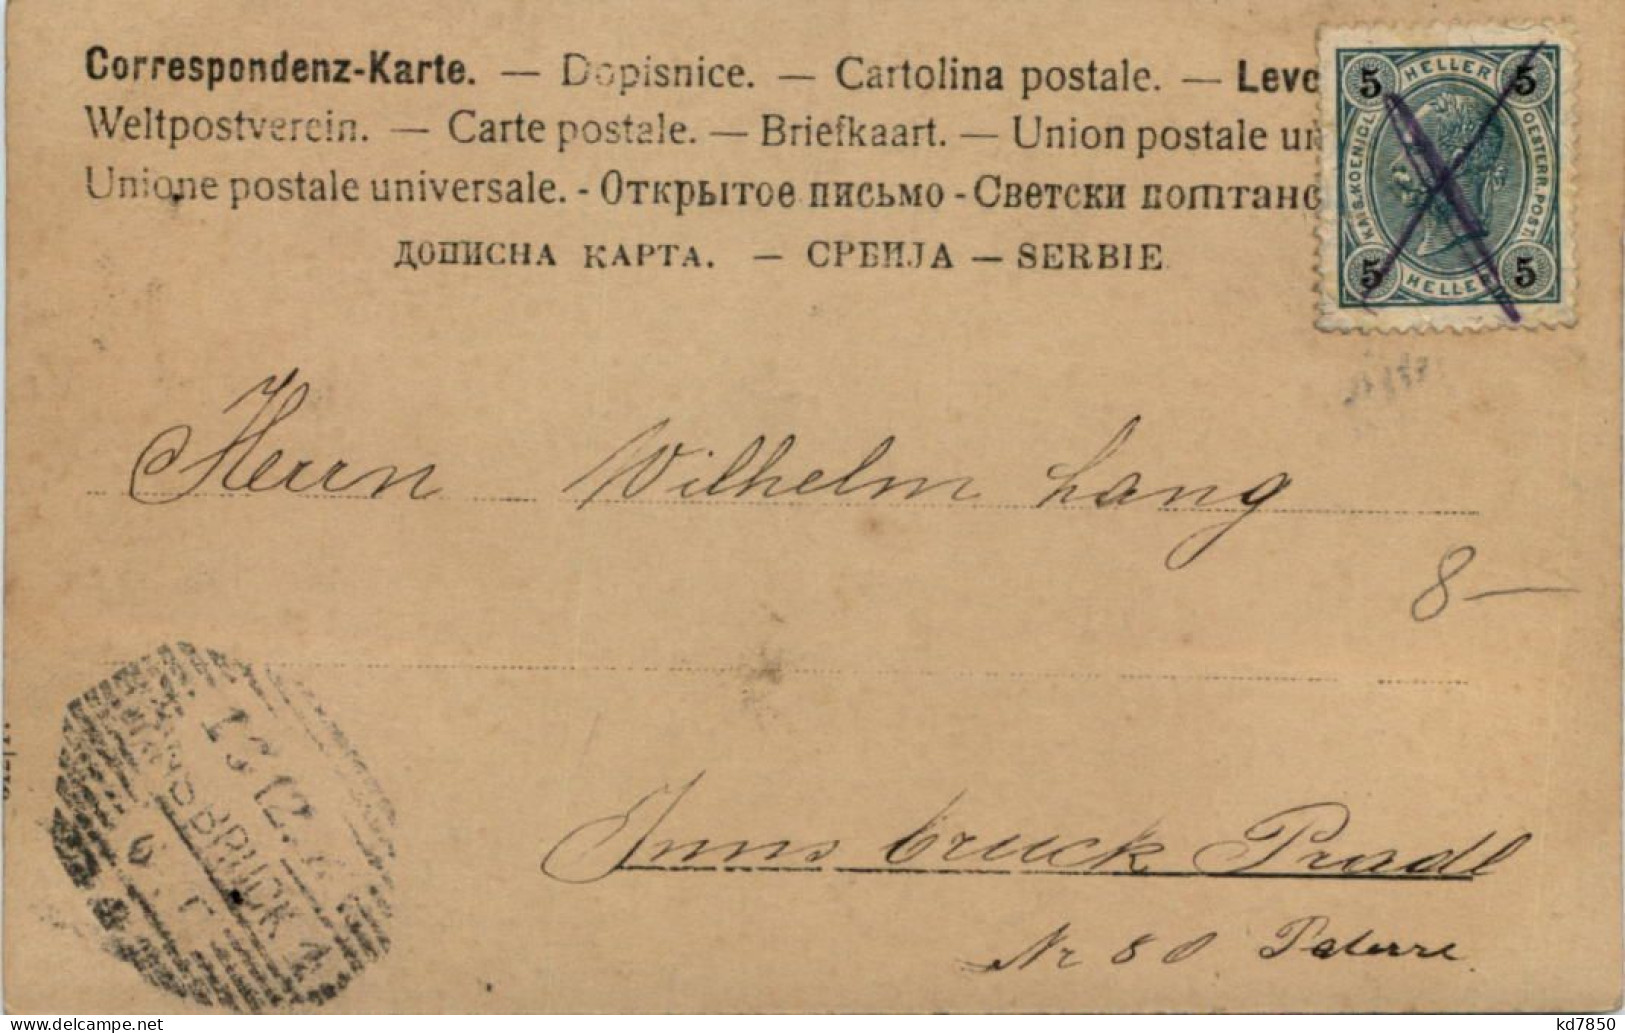 Correspondenz-Karte. — Dopisnice. — Cartolina postale. — Levé
Weltpostverein. — Carte postale. — Briefkaart. — Union postale un
Unione postale universale. - Открытое письмо - Светски поштанс
ДОПИСНА КАРТА. — СРБИЈА — SERBIE
5 HELLER 5
KAIS. KOENIGL. OESTERR. POST.
5 HELLER 5
Herrn Wilhelm Lang
8 —
INNSBRUCK 1
Innsbruck Pradl
Nr 80
kd7850